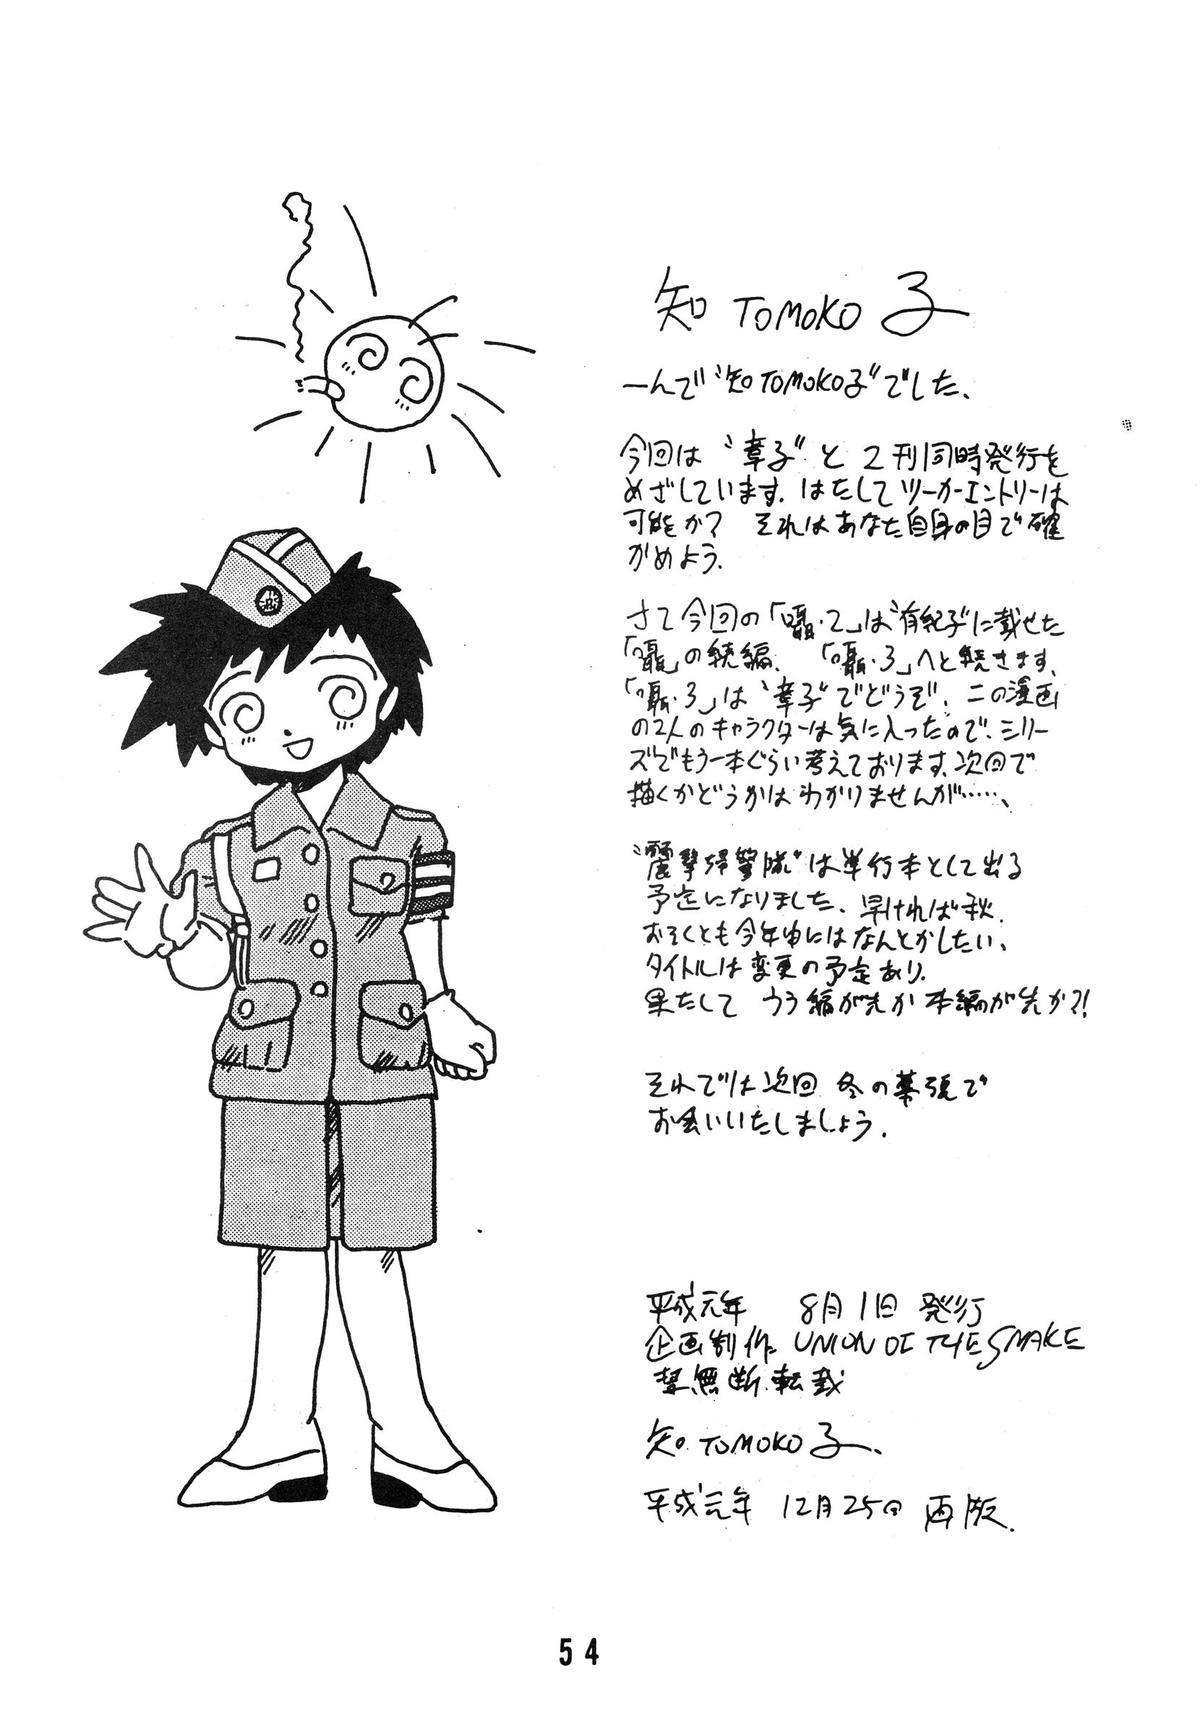 知 TOMOKO 子
一んで“知TOMOKO子”でした、
今回は“幸子”と2刊同時発行を
めざしています。はたしてツーカーエントリーは
可能か? それはあなた自身の目で確
かめよう。
さて今回の「囁・2」は“有紀子”に載せた
「囁」の続編、「囁・3」へと続きます。
「囁・3」は“幸子”でどうぞ。この漫画
の2人のキャラクターは気に入ったので、シリー
ズでもう一本ぐらい考えております。次回で
描くかどうかはわかりませんが……、
は単行本として出る
予定になりました、早ければ秋、
おそくとも今年中にはなんとかしたい、
タイトルは変更の予定あり。
果たして うら編が先か 本編が先か?!
それでは次回 冬の幕張で
お会いいたしましょう。
平成元年 8月1日 発行
企画制作 UNION OF THE SNAKE
禁無断転載
知 TOMOKO 子
平成元年 12月25日 再版
54